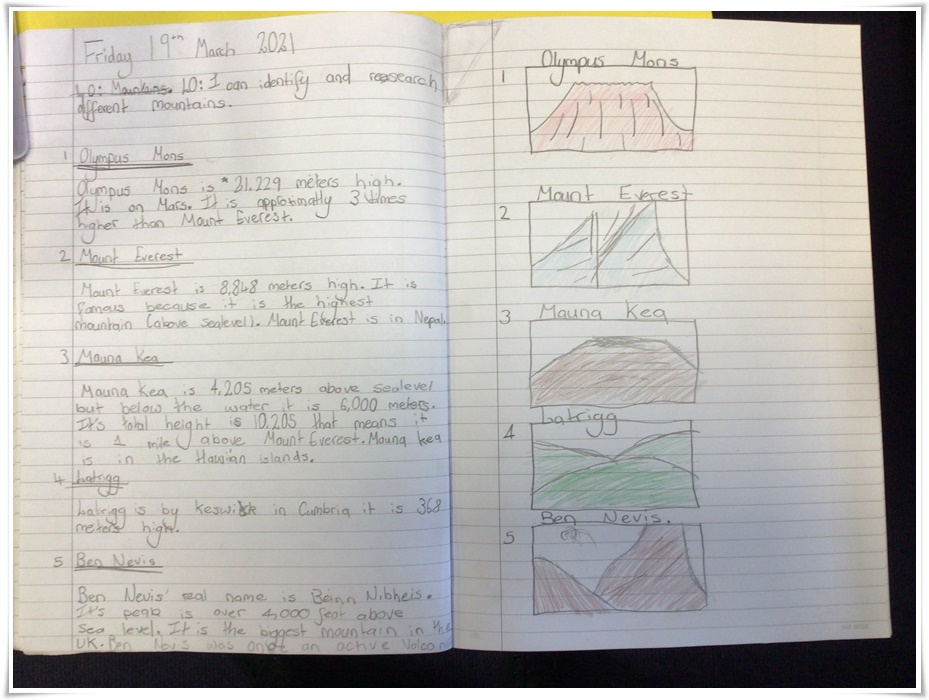 Friday 19th March 2021
LO: Mountains. LO: I can identify and reasearch
different mountains.
1 Olympus Mons
Olympus Mons is 21.229 meters high.
It is on Mars. It is approximatly 3 times
higher than Mount Everest.
2 Mount Everest
Mount Everest is 8,848 meters high. It is
famous because it is the highest
mountain (above sealevel). Mount Everest is in Nepal.
3 Mauna Kea
Mauna Kea is 4,205 meters above sealevel
but below the water it is 6,000 meters.
It's total height is 10,205 that means it
is 1 mile above Mount Everest. Mauna Kea
is in the Hawiian islands.
4 Latrigg
Latrigg is by Keswick in Cumbria it is 368
meters high.
5 Ben Nevis
Ben Nevis' real name is Beinn Nibheis.
It's peak is over 4,000 feat above
sea level. It is the biggest mountain in the
UK. Ben was an active
1 Olympus Mons
2 Mount Everest
3 Mauna Kea
4 Latrigg
5 Ben Nevis.